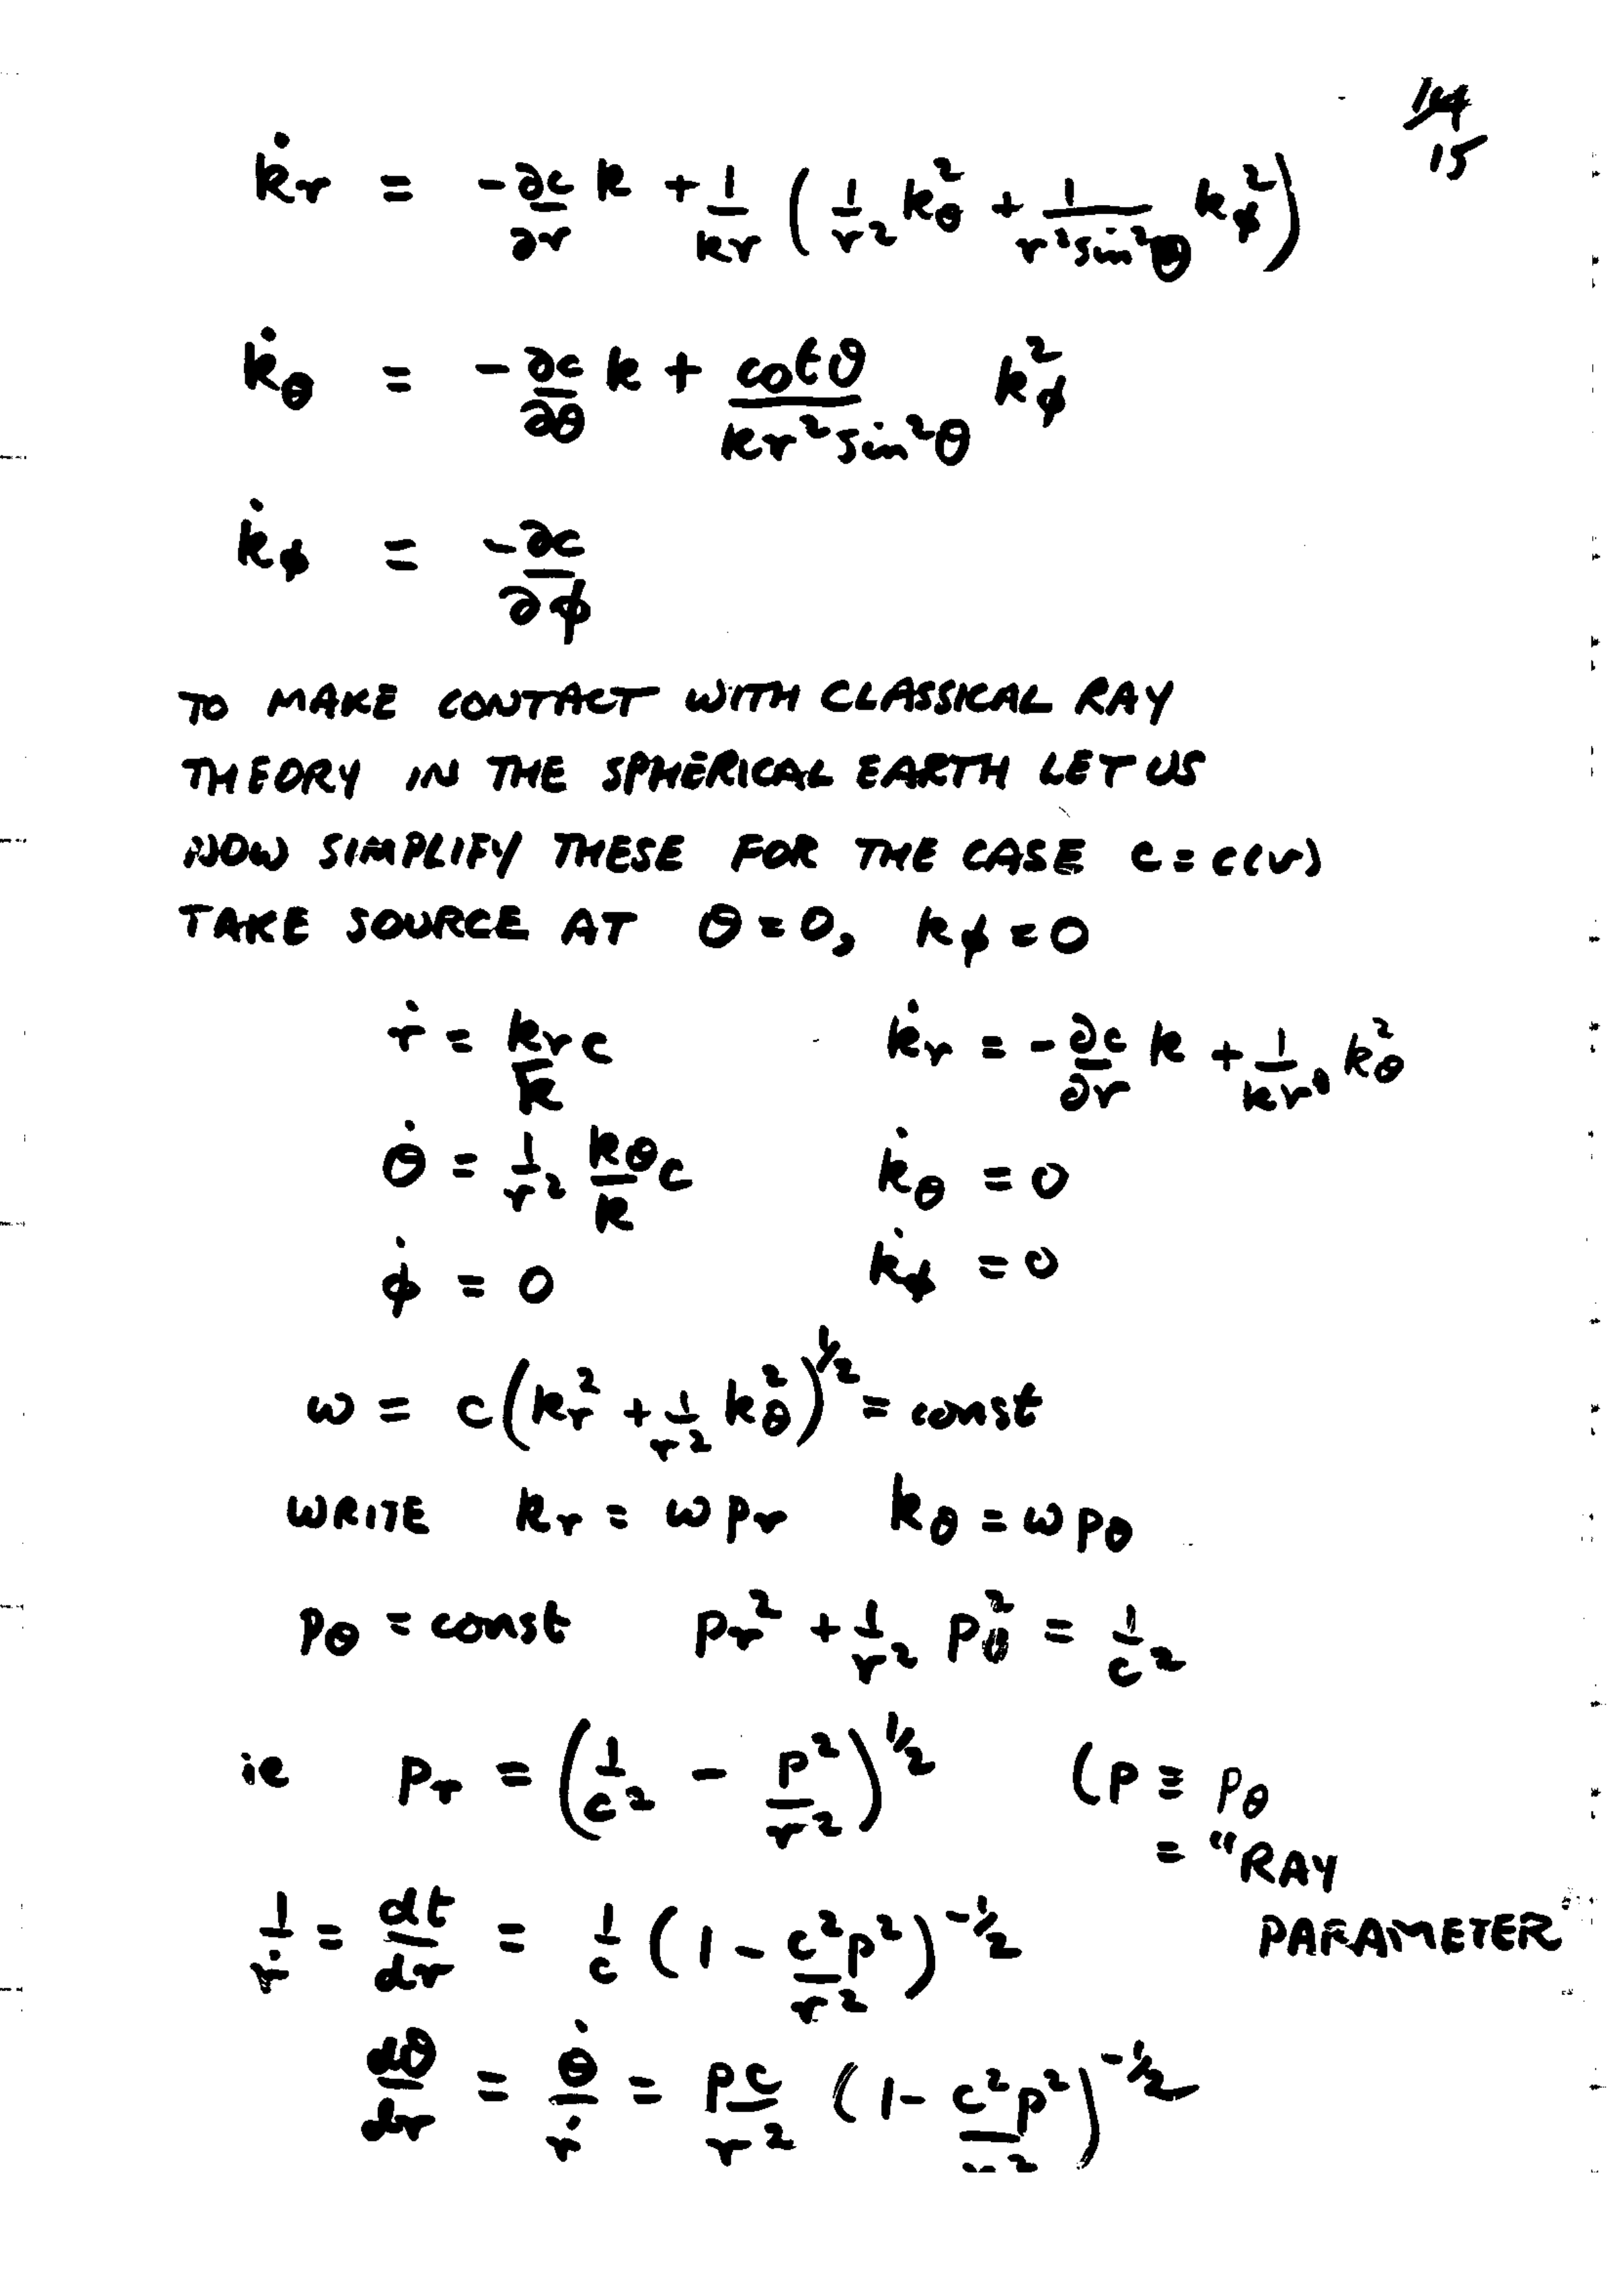 14
15
k̇r = -∂c/∂r k + 1/kr (1/r² kθ² + 1/(r²sin²θ) kφ²)
k̇θ = -∂c/∂θ k + cotθ/(kr²sin²θ) kφ²
k̇φ = -∂c/∂φ
TO MAKE CONTACT WITH CLASSICAL RAY
THEORY IN THE SPHERICAL EARTH LET US
NOW SIMPLIFY THESE FOR THE CASE c = c(r)
TAKE SOURCE AT θ=0, kφ=0
ṙ = kr/k c k̇r = -∂c/∂r k + 1/kr³ kθ²
θ̇ = 1/r² kθ/k c k̇θ = 0
φ̇ = 0 k̇φ = 0
ω = c(kr² + 1/r² kθ²)^½ = const
WRITE kr = ωpr kθ = ωpθ
pθ = const pr² + 1/r² pθ² = 1/c²
ie pr = (1/c² - p²/r²)^½ (p ≡ pθ
= "RAY
1/ṙ = dt/dr = 1/c (1 - c²p²/r²)^-½ PARAMETER"
dθ/dr = θ̇/ṙ = pc/r² (1 - c²p²/r²)^-½